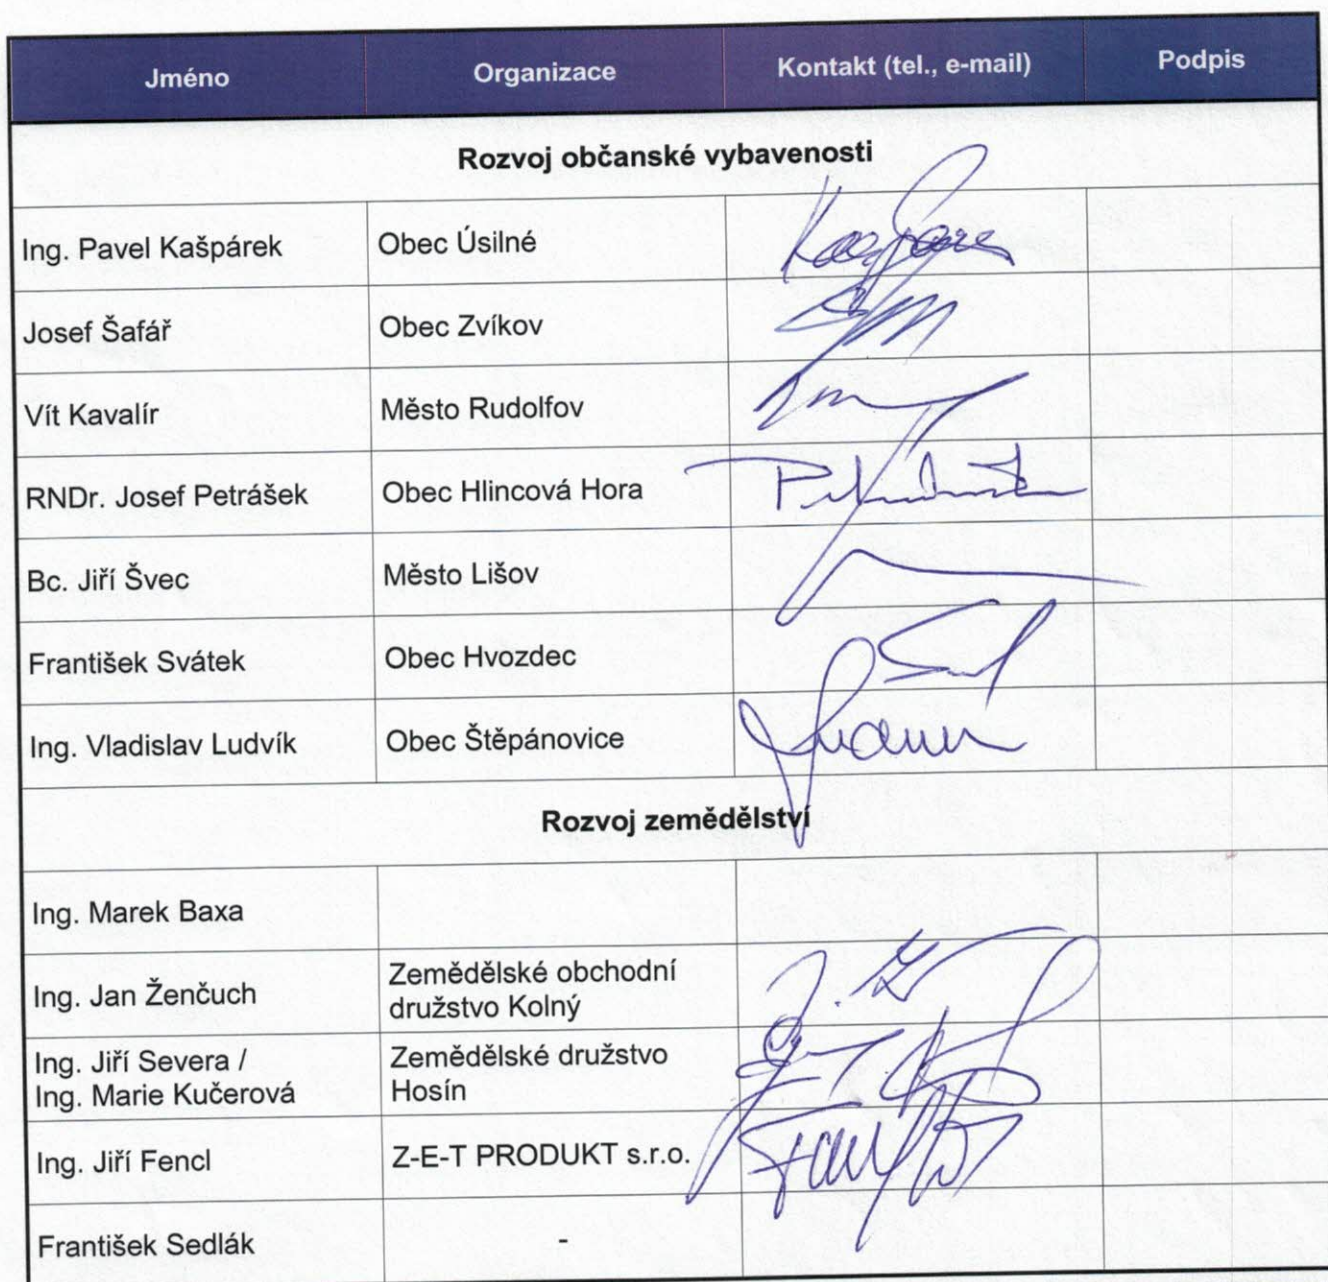 Jméno Organizace Kontakt (tel., e-mail) Podpis
Rozvoj občanské vybavenosti
Ing. Pavel Kašpárek Obec Úsilné
Josef Šafář Obec Zvíkov
Vít Kavalír Město Rudolfov
RNDr. Josef Petrášek Obec Hlincová Hora
Bc. Jiří Švec Město Lišov
František Svátek Obec Hvozdec
Ing. Vladislav Ludvík Obec Štěpánovice
Rozvoj zemědělství
Ing. Marek Baxa
Ing. Jan Ženčuch Zemědělské obchodní
družstvo Kolný
Ing. Jiří Severa / Zemědělské družstvo
Ing. Marie Kučerová Hosín
Ing. Jiří Fencl Z-E-T PRODUKT s.r.o.
František Sedlák -